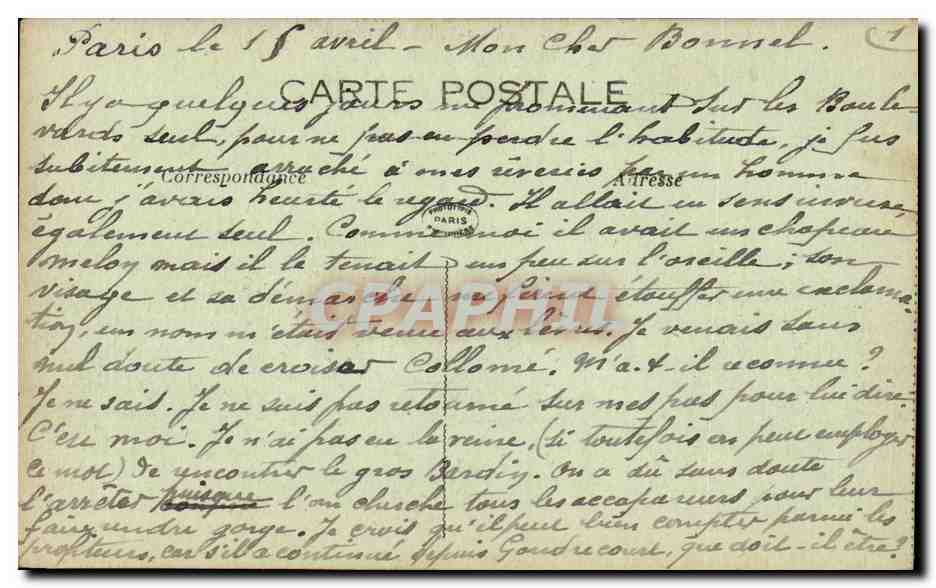 Paris le 15 avril - Mon Cher Bonnel. 1
CARTE POSTALE
Il y a quelques jours me promenant sur les Boule
vards seul, pour ne pas en perdre l'habitude, je fus
subitement arraché à mes rêveries par un homme
Correspondance Adresse
dont j'avais heurté le regard. Il allait en sens inverse,
PHOTOTYPIE PARIS
également seul. Comme moi il avait un chapeau
melon mais il le tenait un peu sur l'oreille ; son
visage et sa démarche me firent étouffer une exclama-
CPAPHIL
tion, un nom m'était venu aux lèvres. Je venais sans
nul doute de croiser Collomé. M'a-t-il reconnu ?
Je ne sais. Je ne suis pas retourné sur mes pas pour lui dire
C'est moi. Je n'ai pas eu la veine, (si toutefois on peut employer
ce mot) de rencontrer le gros Bardin. On a dû sans doute
l'arrêter puisque l'on cherche tous les accapareurs pour leur
faire rendre gorge. Je crois qu'il peut bien compter parmi les
profiteurs, car s'il a continué depuis Gondrecourt, que doit-il être ?